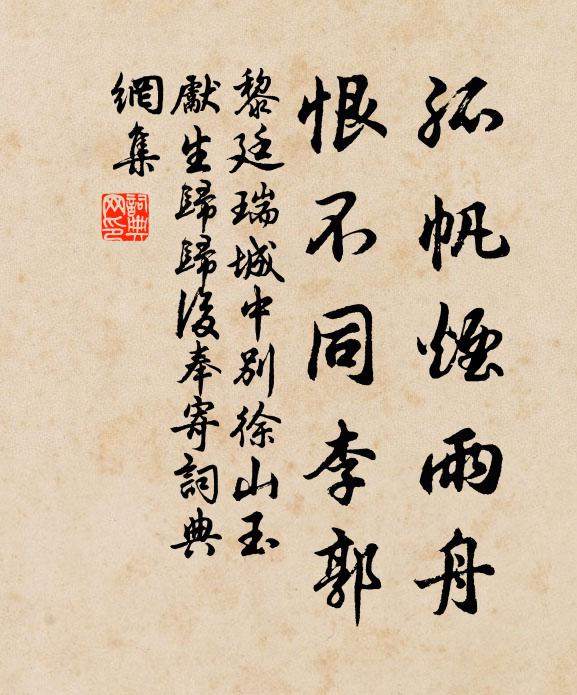 孤帆煙雨舟
恨不同李郭
黎廷瑞城中別徐山玉
獻生歸歸後奉寄詞典
網集
詞典
网印